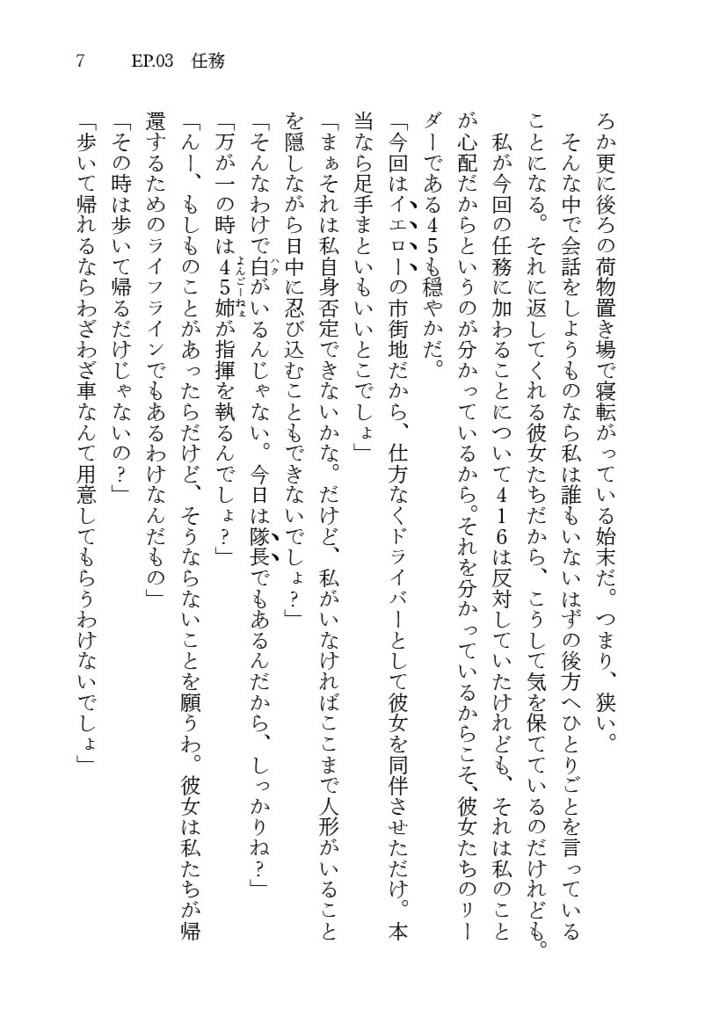 7 EP.03 任務
ろか更に後ろの荷物置き場で寝転がっている始末だ。つまり、狭い。
そんな中で会話をしようものなら私は誰もいないはずの後方へひとりごとを言っている
ことになる。それに返してくれる彼女たちだから、こうして気を保てているのだけれども。
私が今回の任務に加わることについて416は反対していたけれども、それは私のこと
が心配だからというのが分かっているから。それを分かっているからこそ、彼女たちのリー
ダーである45も穏やかだ。
「今回はイエローの市街地だから、仕方なくドライバーとして彼女を同伴させただけ。本
当なら足手まといもいいとこでしょ」
「まぁそれは私自身否定できないかな。だけど、私がいなければここまで人形がいること
を隠しながら日中に忍び込むこともできないでしょ？」
「そんなわけで白ハクがいるんじゃない。今日は隊長でもあるんだから、しっかりね？」
「万が一の時は45姉よんごーねぇが指揮を執るんでしょ？」
「んー、もしものことがあったらだけど、そうならないことを願うわ。彼女は私たちが帰
還するためのライフラインでもあるわけなんだもの」
「その時は歩いて帰るだけじゃないの？」
「歩いて帰れるならわざわざ車なんて用意してもらうわけないでしょ」